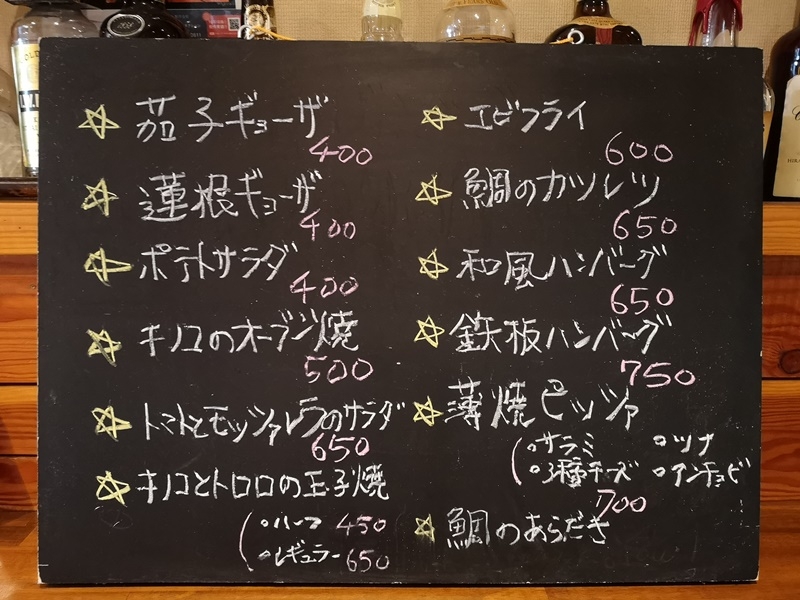 茄子ギョーザ
400
蓮根ギョーザ
400
ポテトサラダ
400
キノコのオーブン焼
500
トマトとモッツァレラのサラダ
650
キノコとトロロの玉子焼
・ハーフ 450
・レギュラー 650
エビフライ
600
鯛のカツレツ
650
和風ハンバーグ
650
鉄板ハンバーグ
750
薄焼ピッツァ
・サラミ ・ツナ
・3種チーズ ・アンチョビ
700
鯛のあらだき